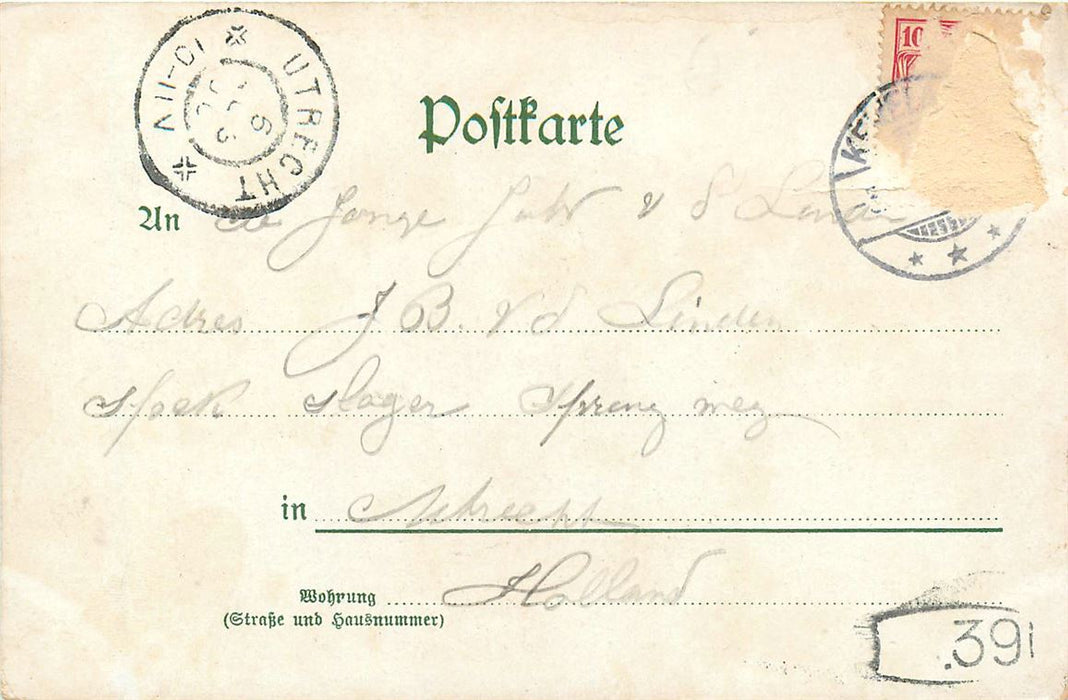 UTRECHT
10-11V
10
Postkarte
An de Jonge Juhr v d Linden
Adres J B. v d Linden
Spek slager Spring weg
in Utrecht
Holland
Wohnung
(Straße und Hausnummer)
39